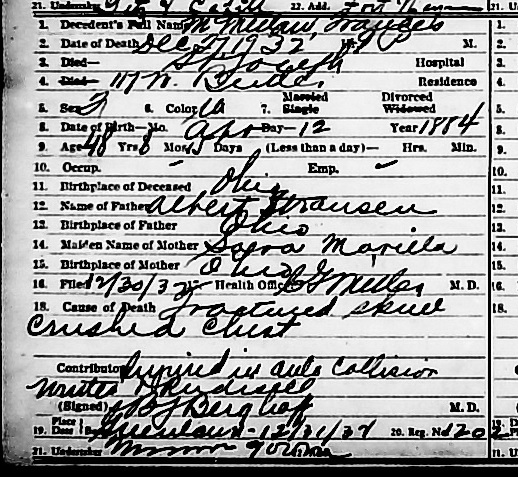 21. Undertaker 22. Add. Fort Wayne
1. Decedent's Full Name McMillan, Frances
2. Date of Death Dec 27 1932 P M.
3. Died— St Joseph Hospital
4. Died— 117 N. Residence
5. Sex F 6. Color W 7. Married Single Divorced Widowed
8. Date of Birth—Mo. Apr Day— 12 Year 1884
9. Age 48 Yrs 8 Mos 15 Days (Less than a day)— Hrs. Min.
10. Occup. — Emp. —
11. Birthplace of Deceased Ohio
12. Name of Father Albert
13. Birthplace of Father Ohio
14. Maiden Name of Mother Sara Marilla
15. Birthplace of Mother Ohio
16. Filed 12/30/32 Health Officer M. D.
18. Cause of Death Fractured skull
Crushed Chest
Contributory Injured in auto collision
(Signed) M. D.
19. Place Date 12/31/32 20. Reg. No 1202
21. Undertaker